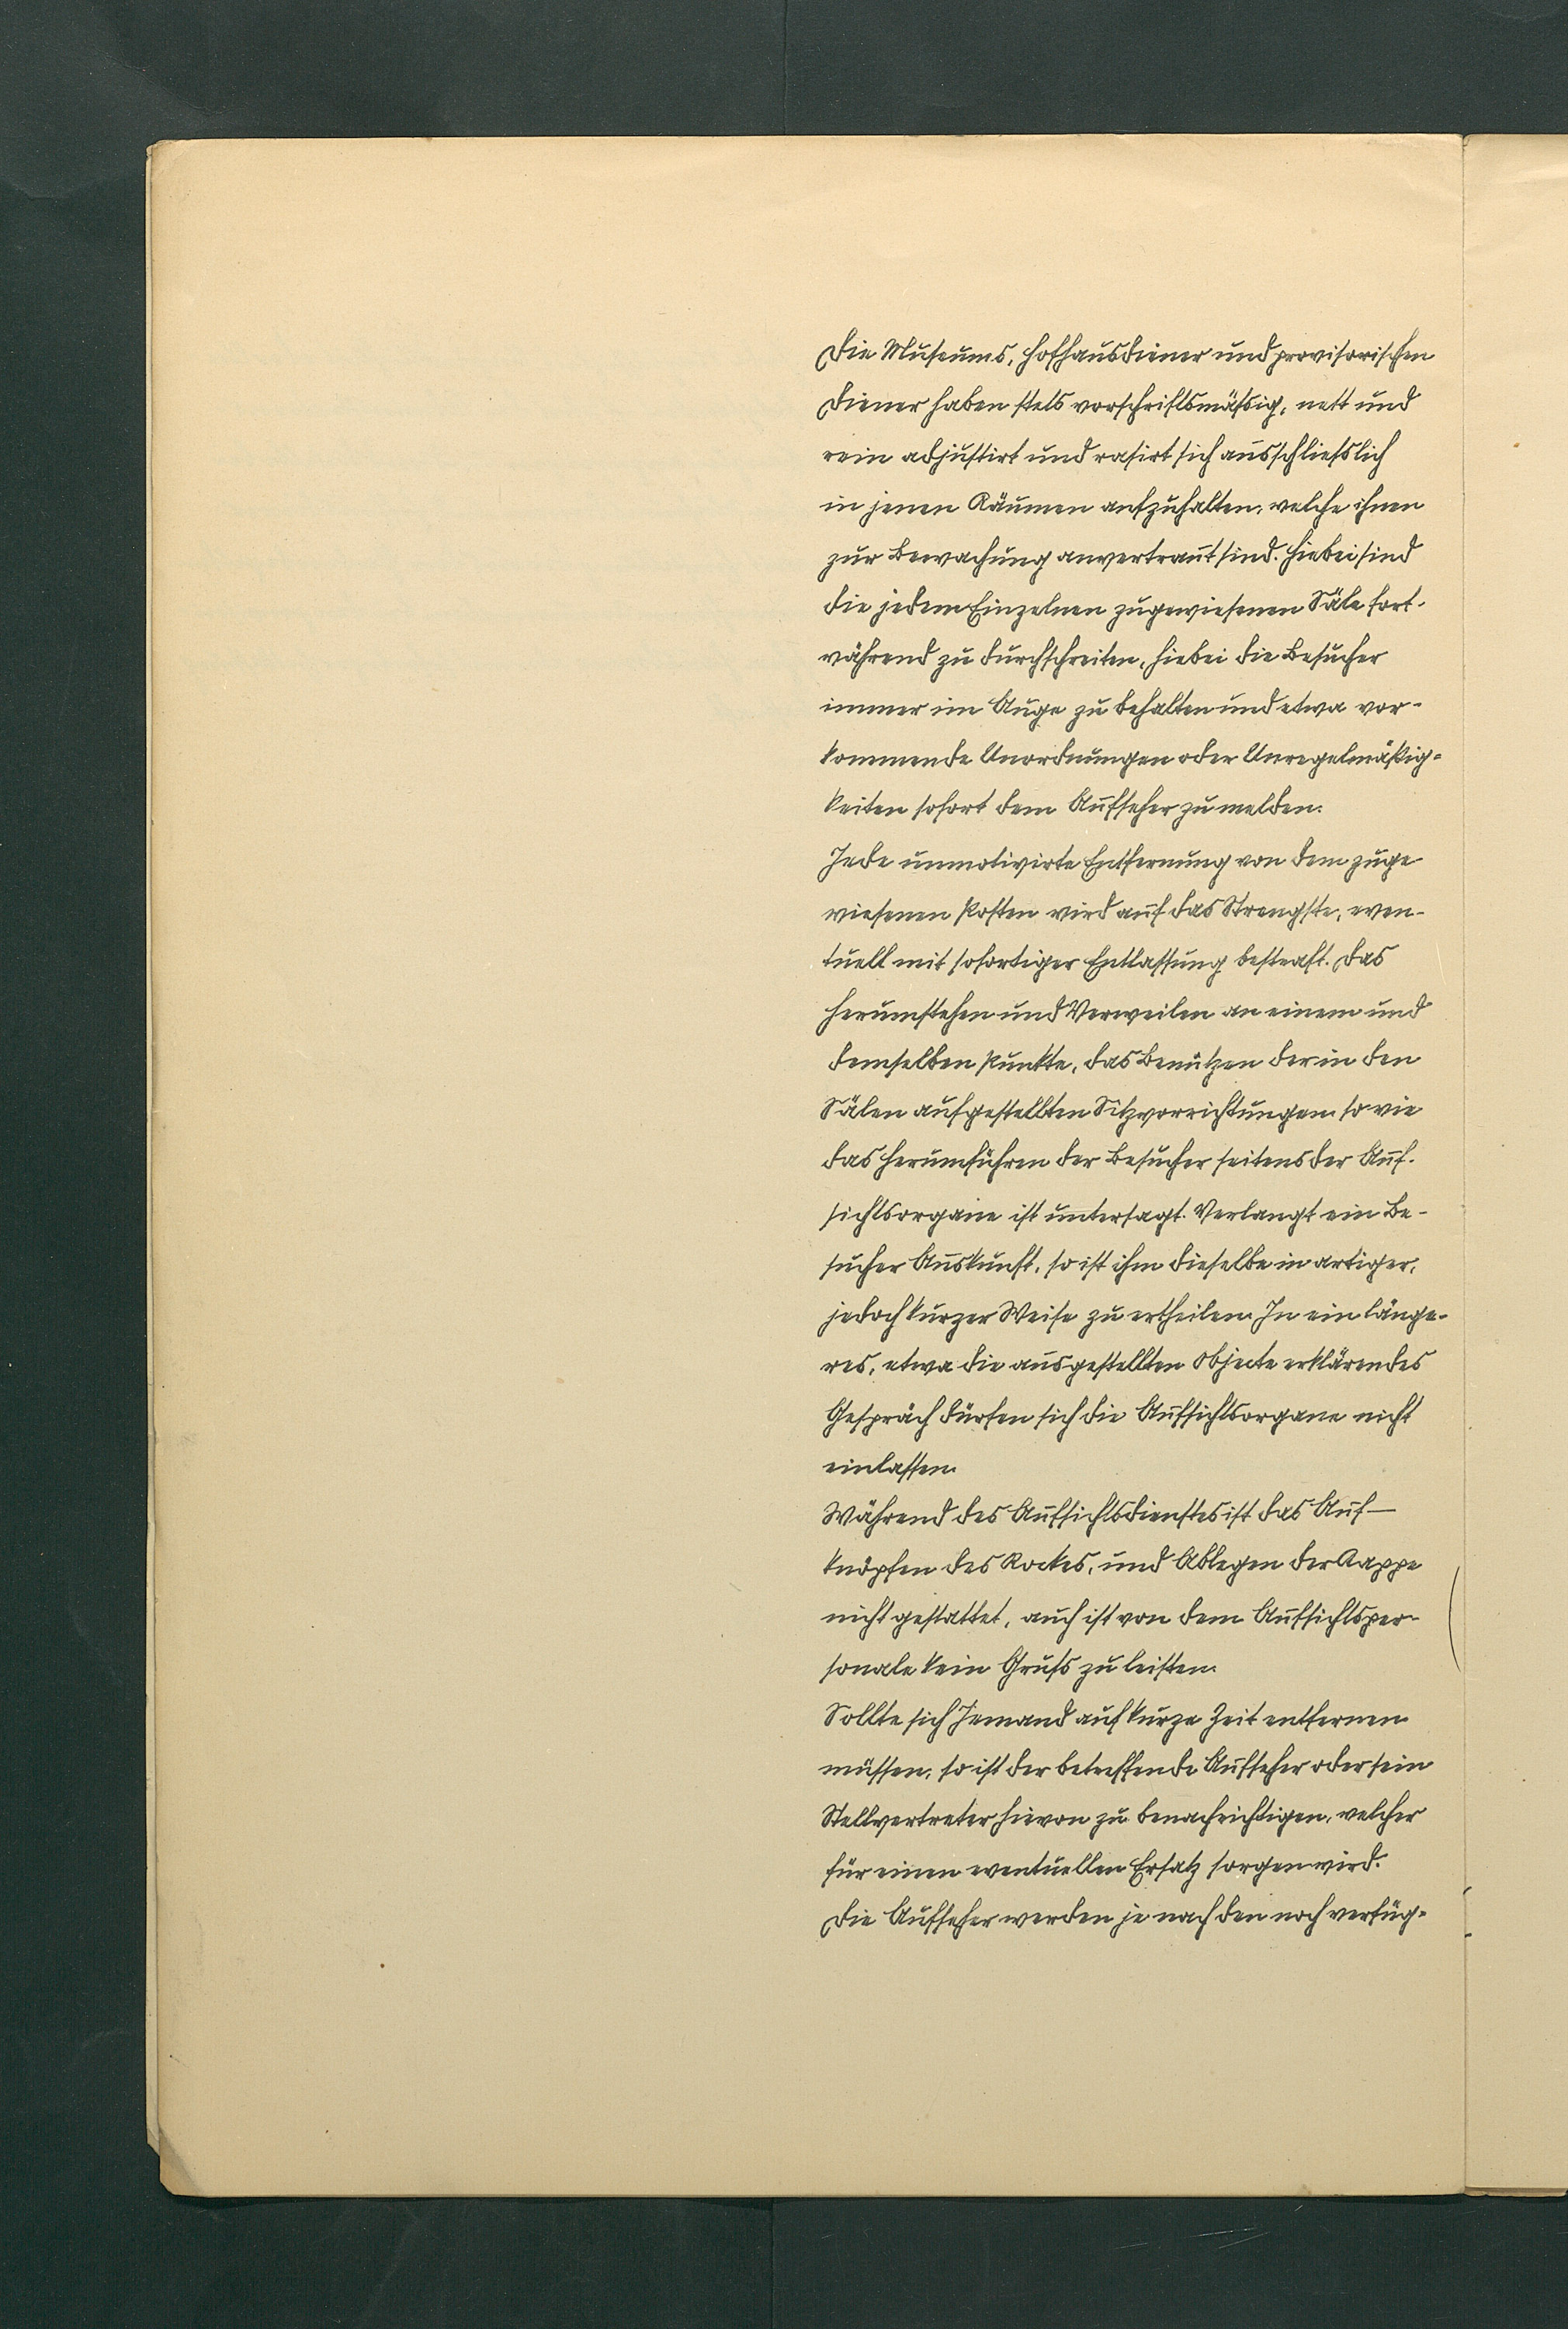 Die Museums, Hofhausdiener und provisorischen
Diener haben stets vorschriftsmäßig, nett und
rein adjustirt und rasirt sich ausschliesslich
in jenen Räumen aufzuhalten, welche ihnen
zur Bewachung anvertraut sind. Hiebei sind
die jedem Einzelnen zugewiesenen Säle fort-
während zu durchschreiten, hiebei die Besucher
immer im Auge zu behalten und etwa vor-
kommende Unordnungen oder Unregelmäßig-
keiten sofort dem Aufseher zu melden.
Jede unmotivirte Entfernung von dem zuge
wiesenen Posten wird auf das Strengste, even-
tuell mit sofortiger Entlassung bestraft. Das
Herumstehen und Verweilen an einem und
demselben Punkte, das Benützen der in den
Sälen aufgestellten Sitzvorrichtungen sowie
das Herumführen der Besucher seitens der Auf-
sichtsorgane ist untersagt. Verlangt ein Be-
sucher Auskunft, so ist ihm dieselbe in artiger,
jedoch kurzer Weise zu ertheilen. In ein länge-
res, etwa die ausgestellten Objecte erklärendes
Gespräch dürfen sich die Aufsichtsorgane nicht
einlassen.
Während des Aufsichtsdienstes ist das Auf-
knöpfen des Rockes, und Ablegen der Kappe
nicht gestattet, auch ist von dem Aufsichtsper-
sonale kein Gruss zu leisten.
Sollte sich Jemand auf kurze Zeit entfernen
müssen, so ist der betreffende Aufseher oder sein
Stellvertreter hievon zu benachrichtigen, welcher
für einen eventuellen Ersatz sorgen wird.
Die Aufseher werden je nach den noch verfüg-